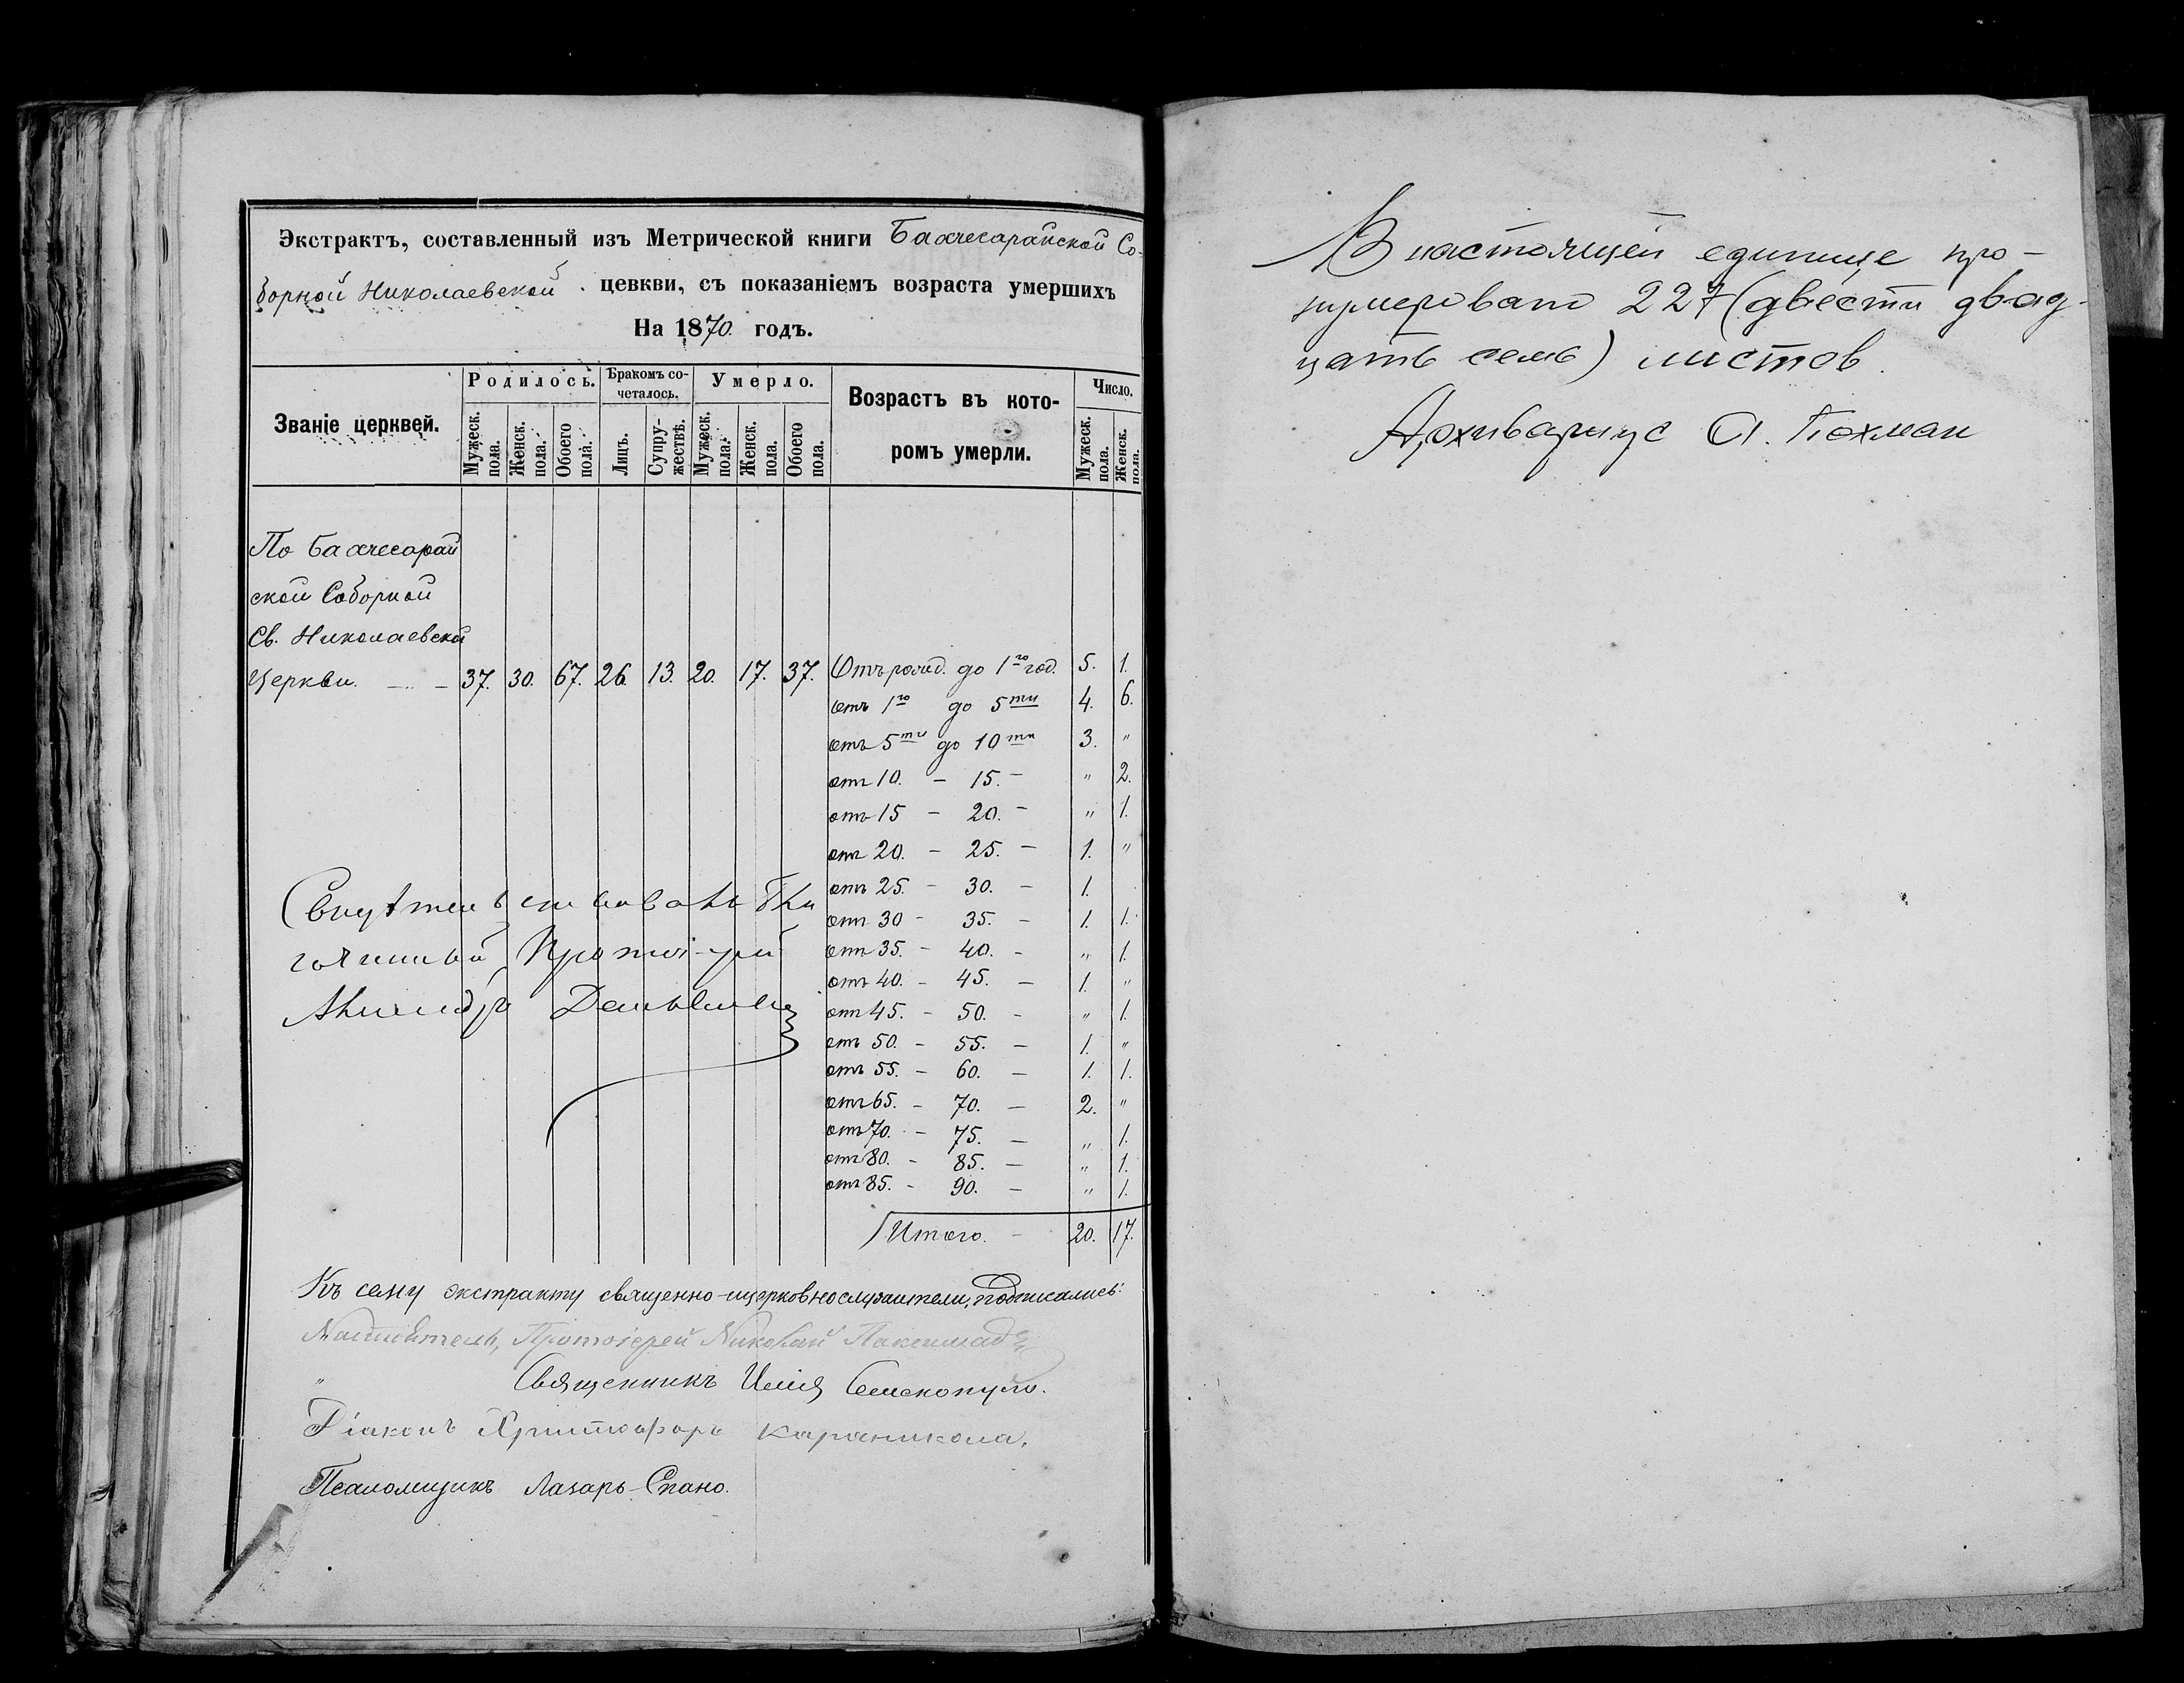 Экстрактъ, составленный изъ Метрической книги Бахчесарайской Со-
борной Николаевской цевкви, съ показаніемъ возраста умершихъ
На 1870. годъ.
Званіе церквей.
Родилось.
Бракомъ со-
четалось.
Умерло.
Возрастъ въ кото-
ромъ умерли.
Число.
Мужеск. пола.
Женск. пола.
Обоего пола.
Лицъ.
Супру-
жествъ.
Мужеск. пола.
Женск. пола.
Обоего пола.
Мужеск. пола.
Женск. пола.
По Бахчесарай
ской Соборной
Св. Николаевской
Церкви. — 37. 30. 67. 26. 13. 20. 17. 37. Отъ рожд. до 1го год. 5. 1.
отъ 1го до 5ти 4. 6.
отъ 5ти до 10ти 3. "
отъ 10. – 15. – " 2.
отъ 15 – 20. – " 1.
отъ 20. – 25. – 1. "
отъ 25. – 30. – 1.
отъ 30 – 35. – 1. 1.
отъ 35. – 40. – " 1.
отъ 40. – 45. – 1. "
отъ 45. – 50. – " 1.
отъ 50. – 55. – 1. "
отъ 55. – 60. – 1. 1.
отъ 65. – 70. – 2. "
отъ 70. – 75. – " 1.
отъ 80. – 85. – " 1.
отъ 85. – 90. – " 1.
Итого. – 20. 17.
Свидѣтельствовалъ Бла
гочинный Протоіерей
Къ сему экстракту священно-церковнослужители, подписались:
Настоятель, Протоіерей Николай
" Священникъ Илія
Діаконъ Христофоръ Караникола,
Псаломщикъ Лазарь Спано.
В настоящей единице про-
нумеровано 227 (двести двад-
цать семь) листов.
Архивариус